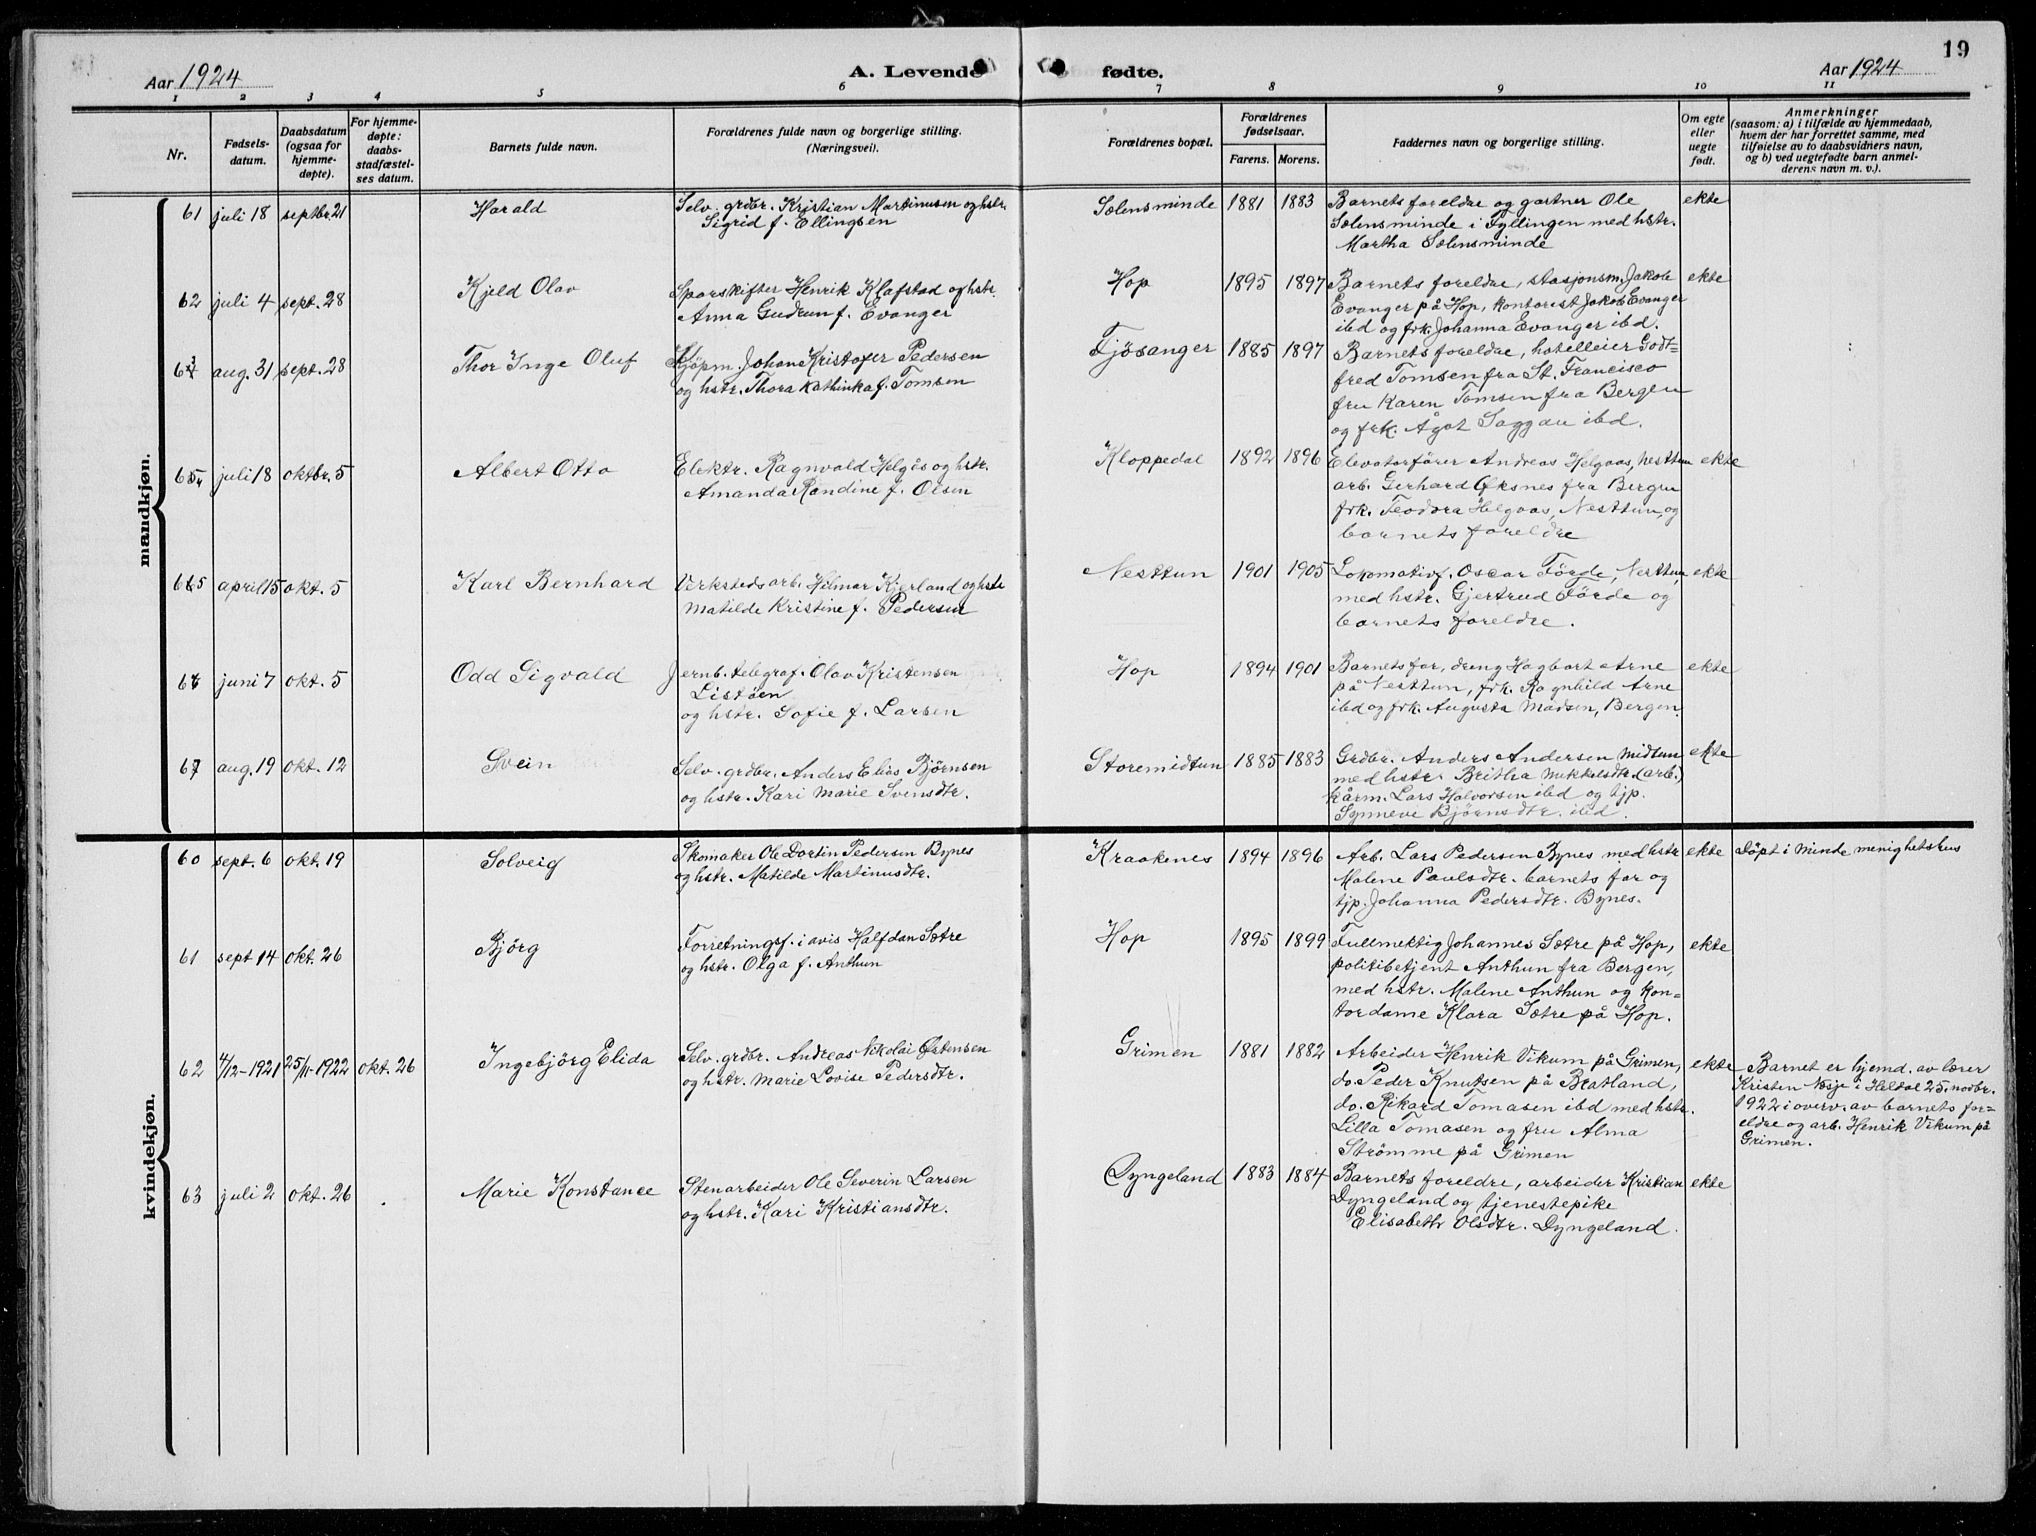 19
Aar 1924
A. Levende fødte.
Aar 1924
1 2 3 4 5 6 7 8 9 10 11
Nr.
Fødsels-
datum.
Daabsdatum
(ogsaa for
hjemme-
døpte).
For hjemme-
døpte:
daabs-
stadfæstel-
ses datum.
Barnets fulde navn.
Forældrenes fulde navn og borgerlige stilling.
(Næringsvei).
Forældrenes bopæl.
Forældrenes
fødselsaar.
Farens. Morens.
Faddernes navn og borgerlige stilling.
Om egte
eller
uegte
født.
Anmerkninger
(saasom: a) i tilfælde av hjemmedaab,
hvem der har forrettet samme, med
tilføielse av to daabsvidners navn,
og b) ved uegtefødte barn anmel-
derens navn m. v.).
mandkjøn.
61 juli 18 septbr. 21 Harald
Selv. grdbr. Kristian Martinusen og hstr.
Sigrid f. Ellingsen
Solensminde 1881 1883
Barnets foreldre og gartner Ole
Solensminde i Fyllingen med hstr.
Martha Solensminde
ekte
62 juli 4 sept. 28 Kjeld Olav
Sporskifter Henrik Klafstad og hstr.
Anna Gudrun f. Evanger
Hop 1895 1897
Barnets foreldre, stasjonsm. Jakob
Evanger på Hop, kontorist Jakob Evanger
ibd og frk. Johanna Evanger ibd.
ekte
63 aug. 31 sept. 28 Thor Inge Oluf
Kjöpm. Johan Kristofer Pedersen
og hstr. Thora Kathinka f. Tomsen
Fjösanger 1885 1897
Barnets foreldre, hotelleier Godt=
fred Tomsen fra St. Francisco
fru Karen Tomsen fra Bergen
og frk. Ågot Saggau ibd.
juli 18 oktbr. 5 Albert Otto
Elektr. Ragnvald Helgås og hstr.
Amanda Randine f. Olsen
Kloppedal 1892 1896
Elevatorförer Andreas Helgaas, Nesttun
arb. Gerhard Öksnes fra Bergen
frk. Teodora Helgaas, Nesttun, og
barnets foreldre
ekte
65 april 15 okt. 5 Karl Bernhard
Verksteds arb. Hilmar Kjerland og hstr
Matilde Kristine f. Pedersen
Nesttun 1901 1905
Lokomotivf. Oscar Förde, Nesttun,
med hstr. Gjertrud Förde og
barnets foreldre.
ekte
juni 7 okt. 5 Odd Sigvald
Jernb. telegraf. Olav Kristensen
Listöen
og hstr. Sofie f. Larsen
Hop 1894 1901
Barnets far, dreng Hagbart Arne
på Nesttun, frk. Ragnhild Arne
ibd og frk. Augusta Madsen, Bergen.
ekte
67 aug. 19 okt. 12 Svein
Selv. grdbr. Anders Elias Björnsen
og hstr. Kari Marie Svensdtr.
Storemidtun 1885 1883
Grdbr. Anders Andersen Midtun
med hstr. Britha Mikkelsdtr. (arb.)
kårm. Lars Halvorsen ibd og tjp.
Synneve Björnsdtr. ibd.
ekte
kvindekjøn.
60 sept. 6 okt. 19 Solveig
Skomaker Ole Dortin Pedersen Bynes
og hstr. Matilde Martinusdtr.
Kraakenes 1894 1896
Arb. Lars Pedersen Bynes med hstr
Malene Paulsdtr. barnets far og
tjp. Johanna Pedersdtr. Bynes.
ekte
Döpt i Minde menighetshus
61 sept 14 okt. 26 Björg
Forretningsf. i avis Halfdan Sætre
og hstr. Olga f. Anthun
Hop 1895 1899
Fullmektig Johannes Sætre på Hop,
politibetjent Anthun fra Bergen,
med hstr. Malene Anthun og kon=
tordame Klara Sætre på Hop.
ekte
62 4/12-1921 25/11-1922 okt. 26 Ingebjörg Elida
Selv. grdbr. Andreas Nikolai Östensen
og hstr. Marie Lovise Pedersdtr.
Grimen 1881 1882
Arbeider Henrik Vikum på Grimen,
do. Peder Knutsen på Bratland,
do. Rikard Tomasen ibd med hstr.
Lilla Tomasen og fru Alma
Strömme på Grimen
ekte
Barnet er hjemd. av lærer
Kristen Næsje i Heldal 25. novbr.
1922 i overv. av barnets for=
eldre og arb. Henrik Vikum på
Grimen.
63 juli 2 okt. 26 Marie Konstance
Stenarbeider Ole Severin Larsen
og hstr. Kari Kristiansdtr.
Dyngeland 1883 1884
Barnets foreldre, arbeider Kristian
Dyngeland og tjenestepike
Elisabeth Olsdtr. Dyngeland.
ekte